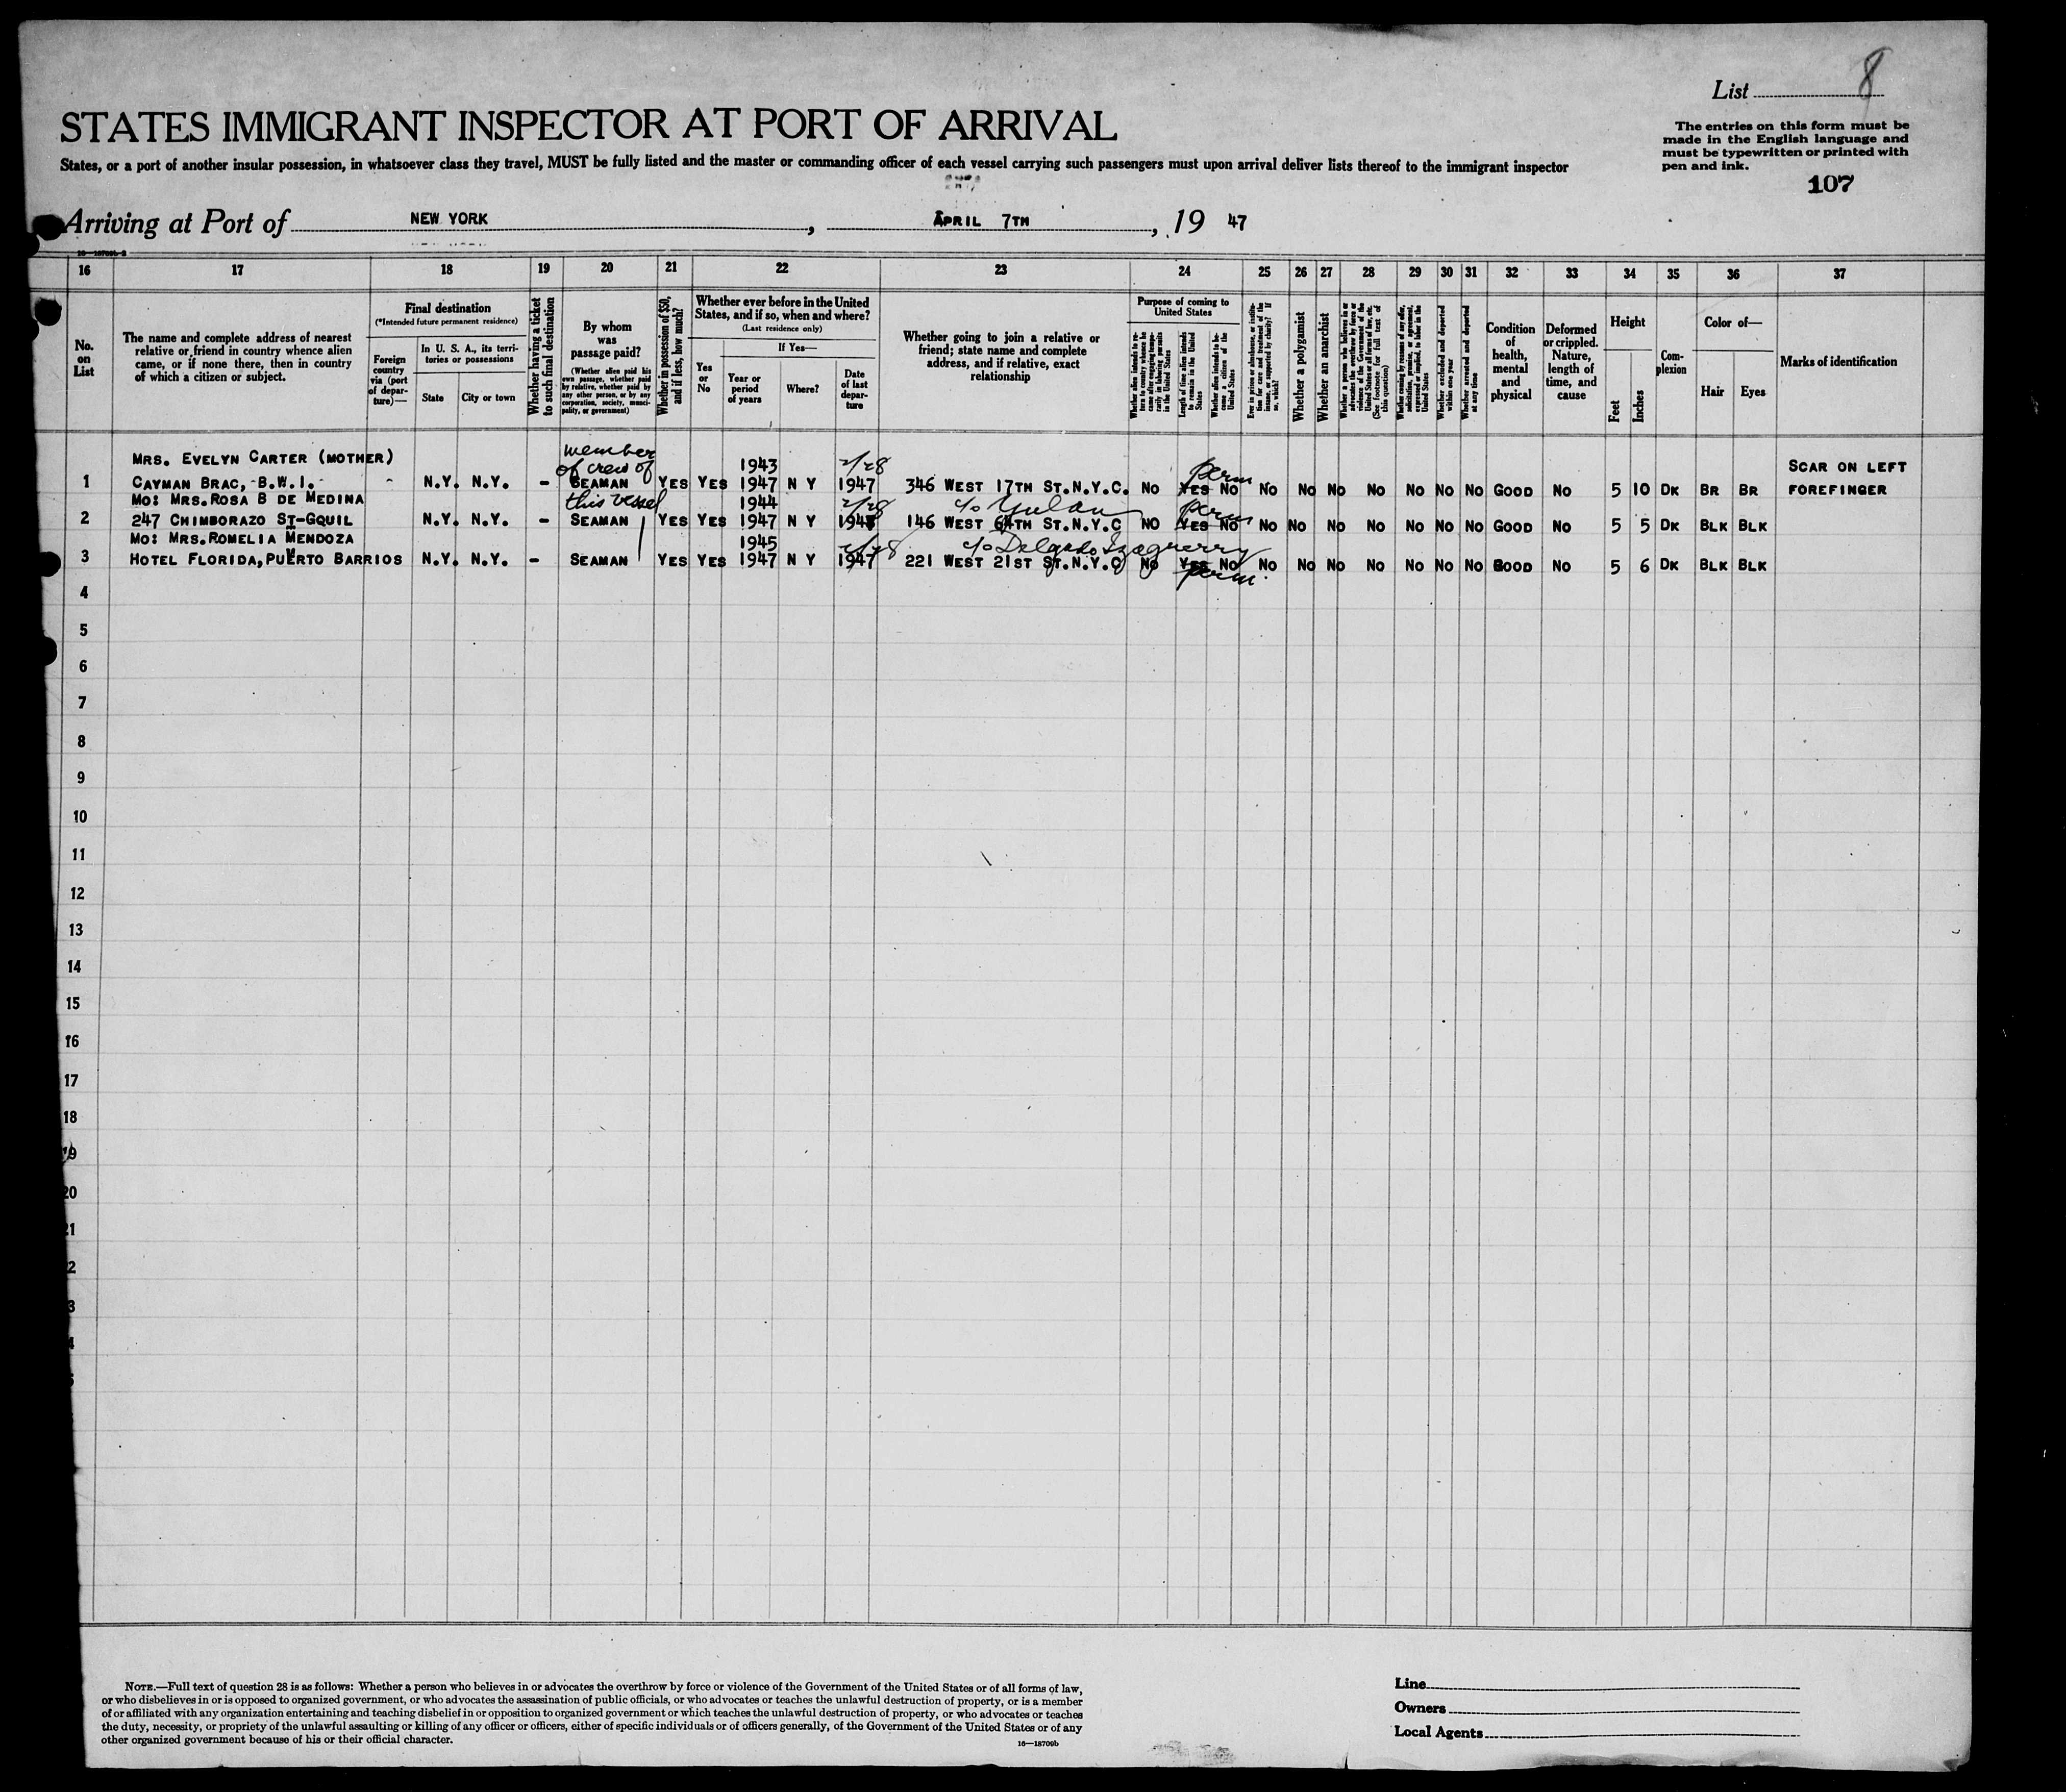 List 8
STATES IMMIGRANT INSPECTOR AT PORT OF ARRIVAL
The entries on this form must be
made in the English language and
must be typewritten or printed with
pen and ink.
States, or a port of another insular possession, in whatsoever class they travel, MUST be fully listed and the master or commanding officer of each vessel carrying such passengers must upon arrival deliver lists thereof to the immigrant inspector
107
Arriving at Port of NEW YORK, APRIL 7TH, 19 47
16 17 18 19 20 21 22 23 24 25 26 27 28 29 30 31 32 33 34 35 36 37
No. on List
The name and complete address of nearest
relative or friend in country whence alien
came, or if none there, then in country
of which a citizen or subject.
Final destination
(*Intended future permanent residence)
Foreign country via (port of departure)—
In U. S. A., its territories or possessions
State
City or town
Whether having a ticket to such final destination
By whom was passage paid?
(Whether alien paid his own passage, whether paid by relative, whether paid by any other person, or by any corporation, society, municipality, or government)
Whether in possession of $50, and if less, how much?
Whether ever before in the United States, and if so, when and where?
(Last residence only)
Yes or No
If Yes—
Year or period of years
Where?
Date of last departure
Whether going to join a relative or
friend; state name and complete
address, and if relative, exact
relationship
Purpose of coming to United States
Length of time alien intends to remain in the United States
Whether alien intends to become a citizen of the United States
Whether a polygamist
Whether an anarchist
Whether excluded and deported within one year
Whether arrested and deported at any time
Condition of health, mental and physical
Deformed or crippled. Nature, length of time, and cause
Height
Feet
Inches
Complexion
Color of—
Hair
Eyes
Marks of identification
MRS. EVELYN CARTER (MOTHER) member of crew of this vessel 1943 2/28 perm SCAR ON LEFT
1 CAYMAN BRAC, B.W.I. - N.Y. N.Y. - SEAMAN YES YES 1947 N Y 1947 346 WEST 17TH ST.N.Y.C. NO YES NO NO NO NO NO NO NO NO GOOD NO 5 10 DK BR BR FOREFINGER
MO: MRS.ROSA B DE MEDINA 1944 2/28 c/o perm
2 247 CHIMBORAZO ST-GQUIL N.Y. N.Y. - SEAMAN YES YES 1947 N Y 1947 146 WEST 64TH ST.N.Y.C NO YES NO NO NO NO NO NO NO NO GOOD NO 5 5 DK BLK BLK
MO: MRS.ROMELIA MENDOZA 1945 2/28 c/o Delgado
3 HOTEL FLORIDA, PUERTO BARRIOS N.Y. N.Y. - SEAMAN YES YES 1947 N Y 1947 221 WEST 21ST ST.N.Y.C NO YES NO NO NO NO NO NO NO NO GOOD NO 5 6 DK BLK BLK
perm.
4
5
6
7
8
9
10
11
12
13
14
15
16
17
18
19
20
21
2
3
4
NOTE.—Full text of question 28 is as follows: Whether a person who believes in or advocates the overthrow by force or violence of the Government of the United States or of all forms of law,
or who disbelieves in or is opposed to organized government, or who advocates the assassination of public officials, or who advocates or teaches the unlawful destruction of property, or is a member
of or affiliated with any organization entertaining and teaching disbelief in or opposition to organized government or which teaches the unlawful destruction of property, or who advocates or teaches
the duty, necessity, or propriety of the unlawful assaulting or killing of any officer or officers, either of specific individuals or of officers generally, of the Government of the United States or of any
other organized government because of his or their official character.
16—18709b
Line
Owners
Local Agents